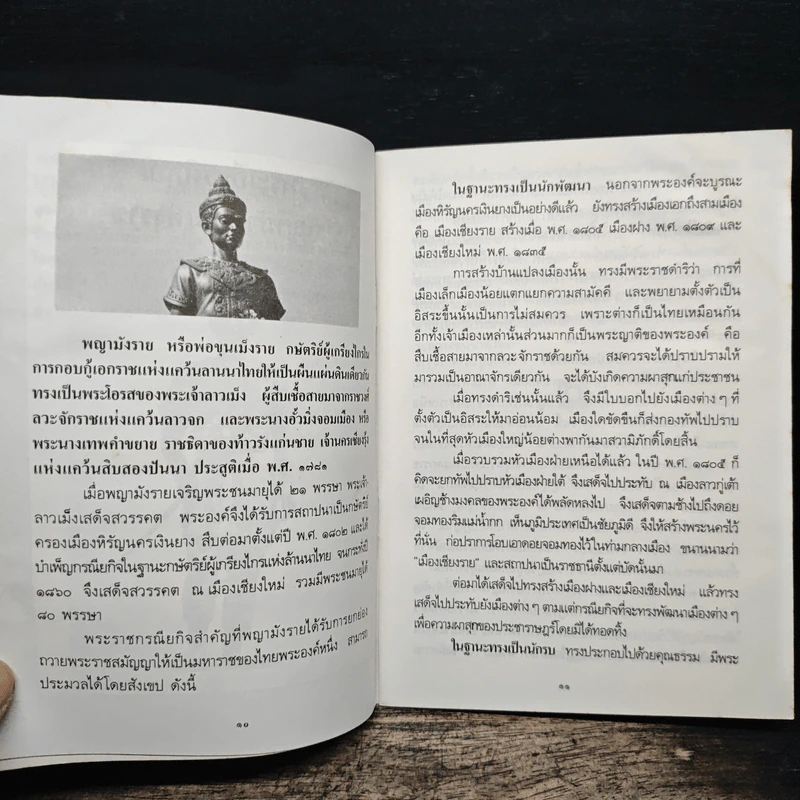 พญามังราย หรือพ่อขุนเม็งราย กษัตริย์ผู้เกรียงไกรใน
การกอบกู้เอกราชแห่งแคว้นลานนาไทยให้เป็นผืนแผ่นดินเดียวกัน
ทรงเป็นพระโอรสของพระเจ้าลาวเม็ง ผู้สืบเชื้อสายมาจากราชวงศ์
ลวะจักราชแห่งแคว้นลาวจก และพระนางอั้วมิ่งจอมเมือง หรือ
พระนางเทพคำขยาย ราชธิดาของท้าวรังแก่นชาย เจ้านครเชียงรุ้ง
แห่งแคว้นสิบสองปันนา ประสูติเมื่อ พ.ศ. ๑๗๘๑
เมื่อพญามังรายเจริญพระชนมายุได้ ๒๑ พรรษา พระเจ้า
ลาวเม็งเสด็จสวรรคต พระองค์จึงได้รับการสถาปนาเป็นกษัตริย์
ครองเมืองหิรัญนครเงินยาง สืบต่อมาตั้งแต่ปี พ.ศ. ๑๘๐๒ และได้
บำเพ็ญกรณียกิจในฐานะกษัตริย์ผู้เกรียงไกรแห่งล้านนาไทย จนกระทั่งปี
๑๘๖๐ จึงเสด็จสวรรคต ณ เมืองเชียงใหม่ รวมมีพระชนมายุได้
๘๐ พรรษา
พระราชกรณียกิจสำคัญที่พญามังรายได้รับการยกย่อง
ถวายพระราชสมัญญาให้เป็นมหาราชของไทยพระองค์หนึ่ง สามารถ
ประมวลได้โดยสังเขป ดังนี้
๑๐
ในฐานะทรงเป็นนักพัฒนา นอกจากพระองค์จะบูรณะ
เมืองหิรัญนครเงินยางเป็นอย่างดีแล้ว ยังทรงสร้างเมืองเอกถึงสามเมือง
คือ เมืองเชียงราย สร้างเมื่อ พ.ศ. ๑๘๐๕ เมืองฝาง พ.ศ. ๑๘๐๙ และ
เมืองเชียงใหม่ พ.ศ. ๑๘๓๕
การสร้างบ้านแปลงเมืองนั้น ทรงมีพระราชดำริว่า การที่
เมืองเล็กเมืองน้อยแตกแยกความสามัคคี และพยายามตั้งตัวเป็น
อิสระขึ้นนั้นเป็นการไม่สมควร เพราะต่างก็เป็นไทยเหมือนกัน
อีกทั้งเจ้าเมืองเหล่านั้นส่วนมากก็เป็นพระญาติของพระองค์ คือ
สืบเชื้อสายมาจากลวะจักราชด้วยกัน สมควรจะได้ปราบปรามให้
มารวมเป็นอาณาจักรเดียวกัน จะได้บังเกิดความผาสุกแก่ประชาชน
เมื่อทรงดำริเช่นนั้นแล้ว จึงมีใบบอกไปยังเมืองต่าง ๆ ที่
ตั้งตัวเป็นอิสระให้มาอ่อนน้อม เมืองใดขัดขืนก็ส่งกองทัพไปปราบ
จนในที่สุดหัวเมืองใหญ่น้อยต่างพากันมาสวามิภักดิ์โดยสิ้น
เมื่อรวบรวมหัวเมืองฝ่ายเหนือได้แล้ว ในปี พ.ศ. ๑๘๐๕ ก็
คิดจะยกทัพไปปราบหัวเมืองฝ่ายใต้ จึงเสด็จไปประทับ ณ เมืองลาวกู่เต้า
เผอิญช้างมงคลของพระองค์ได้พลัดหลงไป จึงเสด็จตามช้างไปถึงดอย
จอมทองริมแม่น้ำกก เห็นภูมิประเทศเป็นชัยภูมิดี จึงให้สร้างพระนครไว้
ที่นั่น ก่อปราการโอบเอาดอยจอมทองไว้ในท่ามกลางเมือง ขนานนามว่า
"เมืองเชียงราย" และสถาปนาเป็นราชธานีตั้งแต่บัดนั้นมา
ต่อมาได้เสด็จไปทรงสร้างเมืองฝางและเมืองเชียงใหม่ แล้วทรง
เสด็จไปประทับยังเมืองต่าง ๆ ตามแต่กรณียกิจที่จะทรงพัฒนาเมืองต่าง ๆ
เพื่อความผาสุกของประชาราษฎร์โดยมิได้ทอดทิ้ง
ในฐานะทรงเป็นนักรบ ทรงประกอบไปด้วยคุณธรรม มีพระ
๑๑